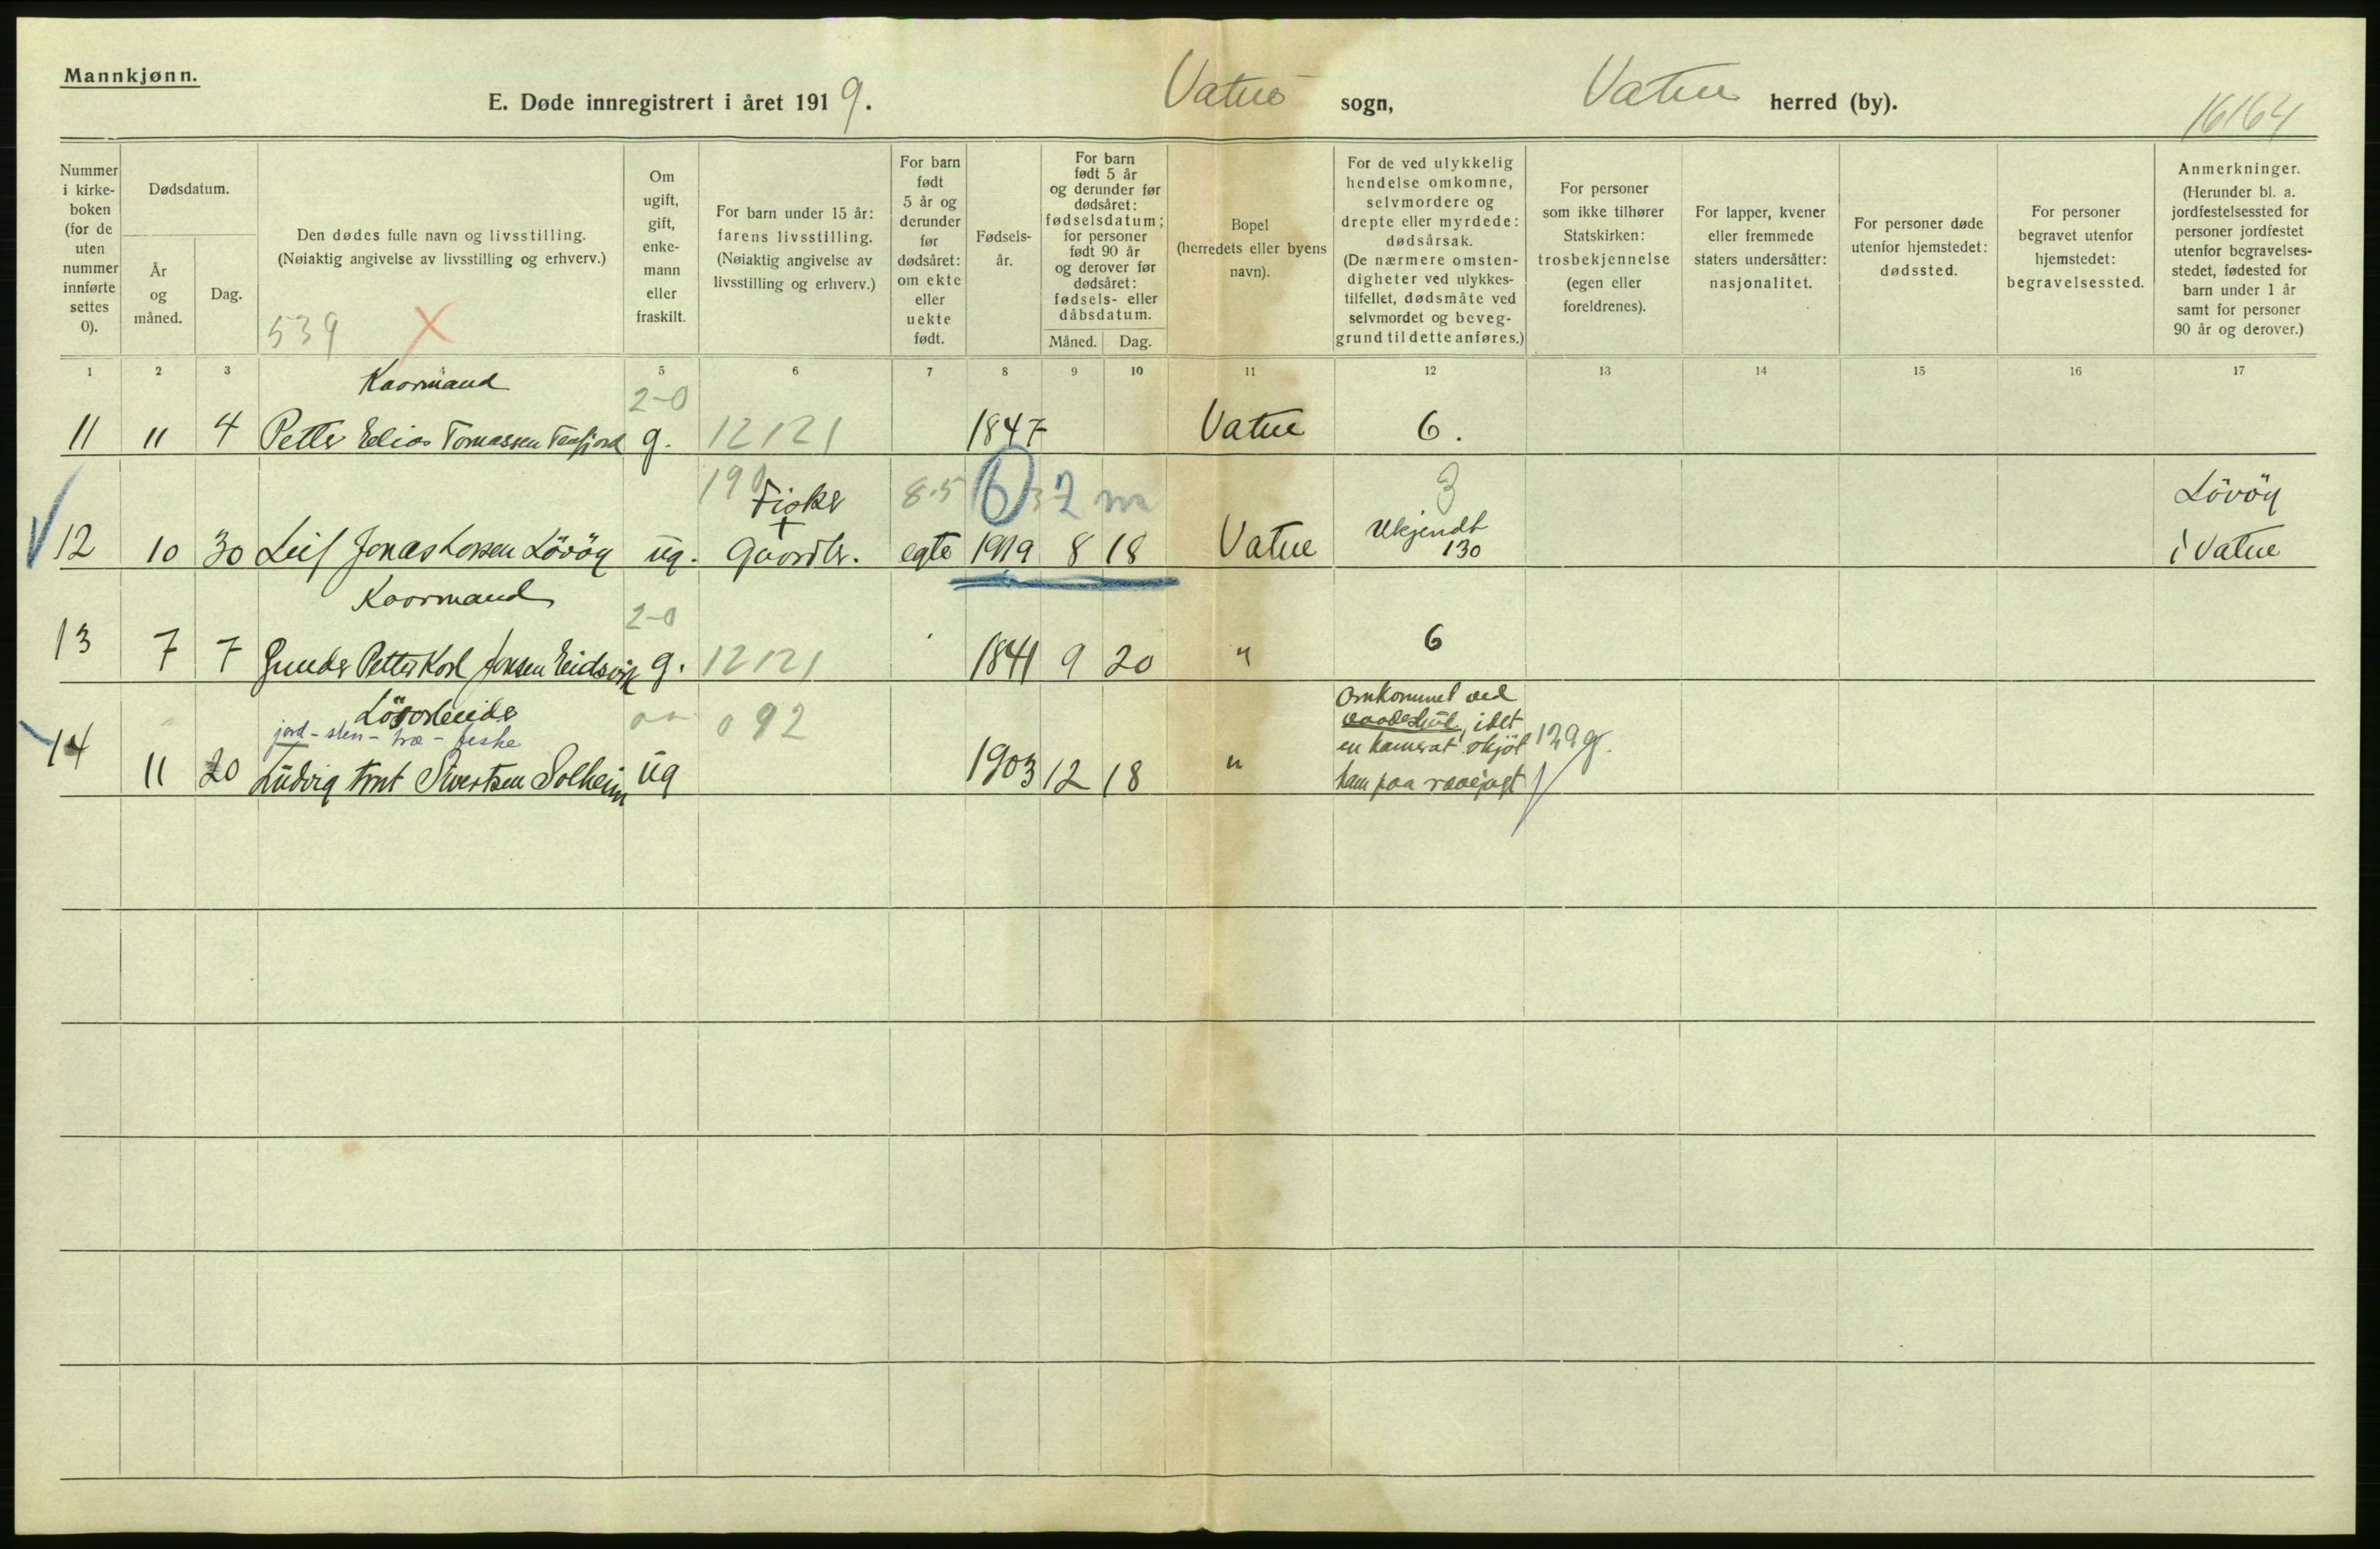 Mannkjønn.
E. Døde innregistrert i året 1919. Vatne sogn, Vatne herred (by).
16164
Nummer i kirke-boken (for de uten nummer innførte settes 0).
Dødsdatum.
År og måned.
Dag.
Den dødes fulle navn og livsstilling.
(Nøiaktig angivelse av livsstilling og erhverv.)
539 X
Om ugift, gift, enke-mann eller fraskilt.
For barn under 15 år: farens livsstilling.
(Nøiaktig angivelse av livsstilling og erhverv.)
For barn født 5 år og derunder før dødsåret: om ekte eller uekte født.
Fødsels-år.
For barn født 5 år og derunder før dødsåret: fødselsdatum; for personer født 90 år og derover før dødsåret: fødsels- eller dåbsdatum.
Måned. Dag.
Bopel (herredets eller byens navn).
For de ved ulykkelig hendelse omkomne, selvmordere og drepte eller myrdede: dødsårsak.
(De nærmere omsten-digheter ved ulykkes-tilfellet, dødsmåte ved selvmordet og beveg-grund til dette anføres.)
For personer som ikke tilhører Statskirken: trosbekjennelse (egen eller foreldrenes).
For lapper, kvener eller fremmede staters undersåtter: nasjonalitet.
For personer døde utenfor hjemstedet: dødssted.
For personer begravet utenfor hjemstedet: begravelsessted.
Anmerkninger.
(Herunder bl. a. jordfestelsessted for personer jordfestet utenfor begravelses-stedet, fødested for barn under 1 år samt for personer 90 år og derover.)
1 2 3 5 6 7 8 9 10 11 12 13 14 15 16 17
Kaarmand 2-0
11 11 4 Petter Elias Tomassen Tenfjord g. 12121 1847 Vatne 6.
190 Fisker 8.5 6 2 m 3 Lövöy
12 10 30 Leif Jonas Larsen Lövöy ug. + Gaardbr. egte 1919 8 18 Vatne Ukjendt 130 i Vatne
Kaarmand 2-0
13 7 7 Gunder Petter Karl Jonsen Eidsvik g. 12121 1841 9 20 " 6
Lösarbeider 092 Omkommet ved
jord - sten - træ - fiske vaadeskud, idet
en kamerat skjöt 129g.
14 11 20 Ludvig Sivertsen Solheim ug 1903 12 18 " ham paa